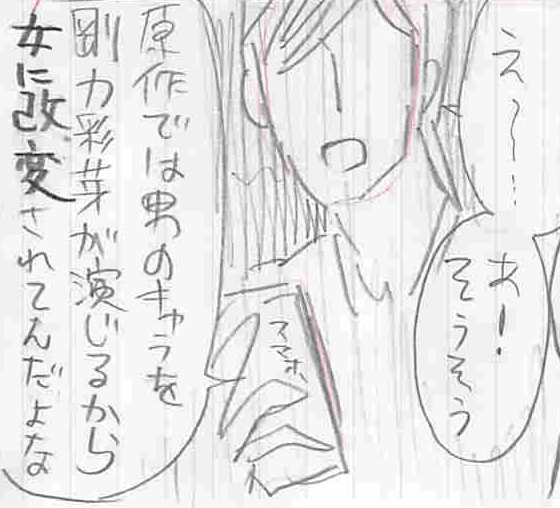 え〜…
あー!
そうそう
スマホ
原作では男のキャラを
剛力彩芽が演じるから
女に改変されてんだよな